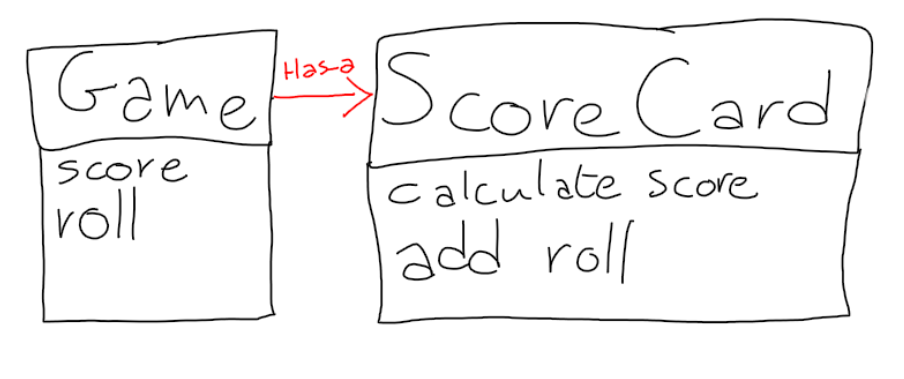 Game
score
roll
Has-a
ScoreCard
calculate score
add roll